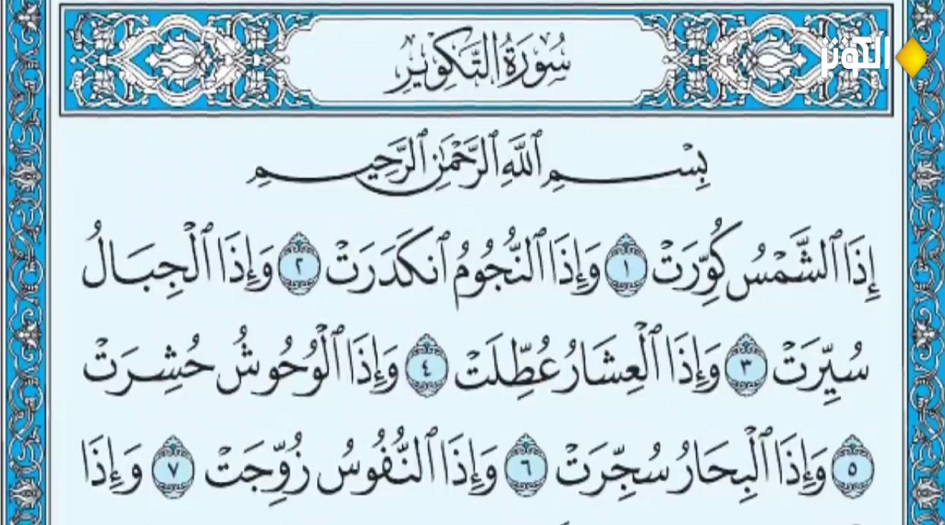 سُورَةُ التَّكْوِيرِ
الكوثر
بِسْمِ ٱللَّهِ ٱلرَّحْمَٰنِ ٱلرَّحِيمِ
إِذَا ٱلشَّمْسُ كُوِّرَتْ ١ وَإِذَا ٱلنُّجُومُ ٱنكَدَرَتْ ٢ وَإِذَا ٱلْجِبَالُ
سُيِّرَتْ ٣ وَإِذَا ٱلْعِشَارُ عُطِّلَتْ ٤ وَإِذَا ٱلْوُحُوشُ حُشِرَتْ
٥ وَإِذَا ٱلْبِحَارُ سُجِّرَتْ ٦ وَإِذَا ٱلنُّفُوسُ زُوِّجَتْ ٧ وَإِذَا